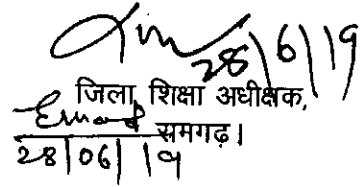 28/6/19
जिला शिक्षा अधीक्षक,
समगढ़।
28/06/19